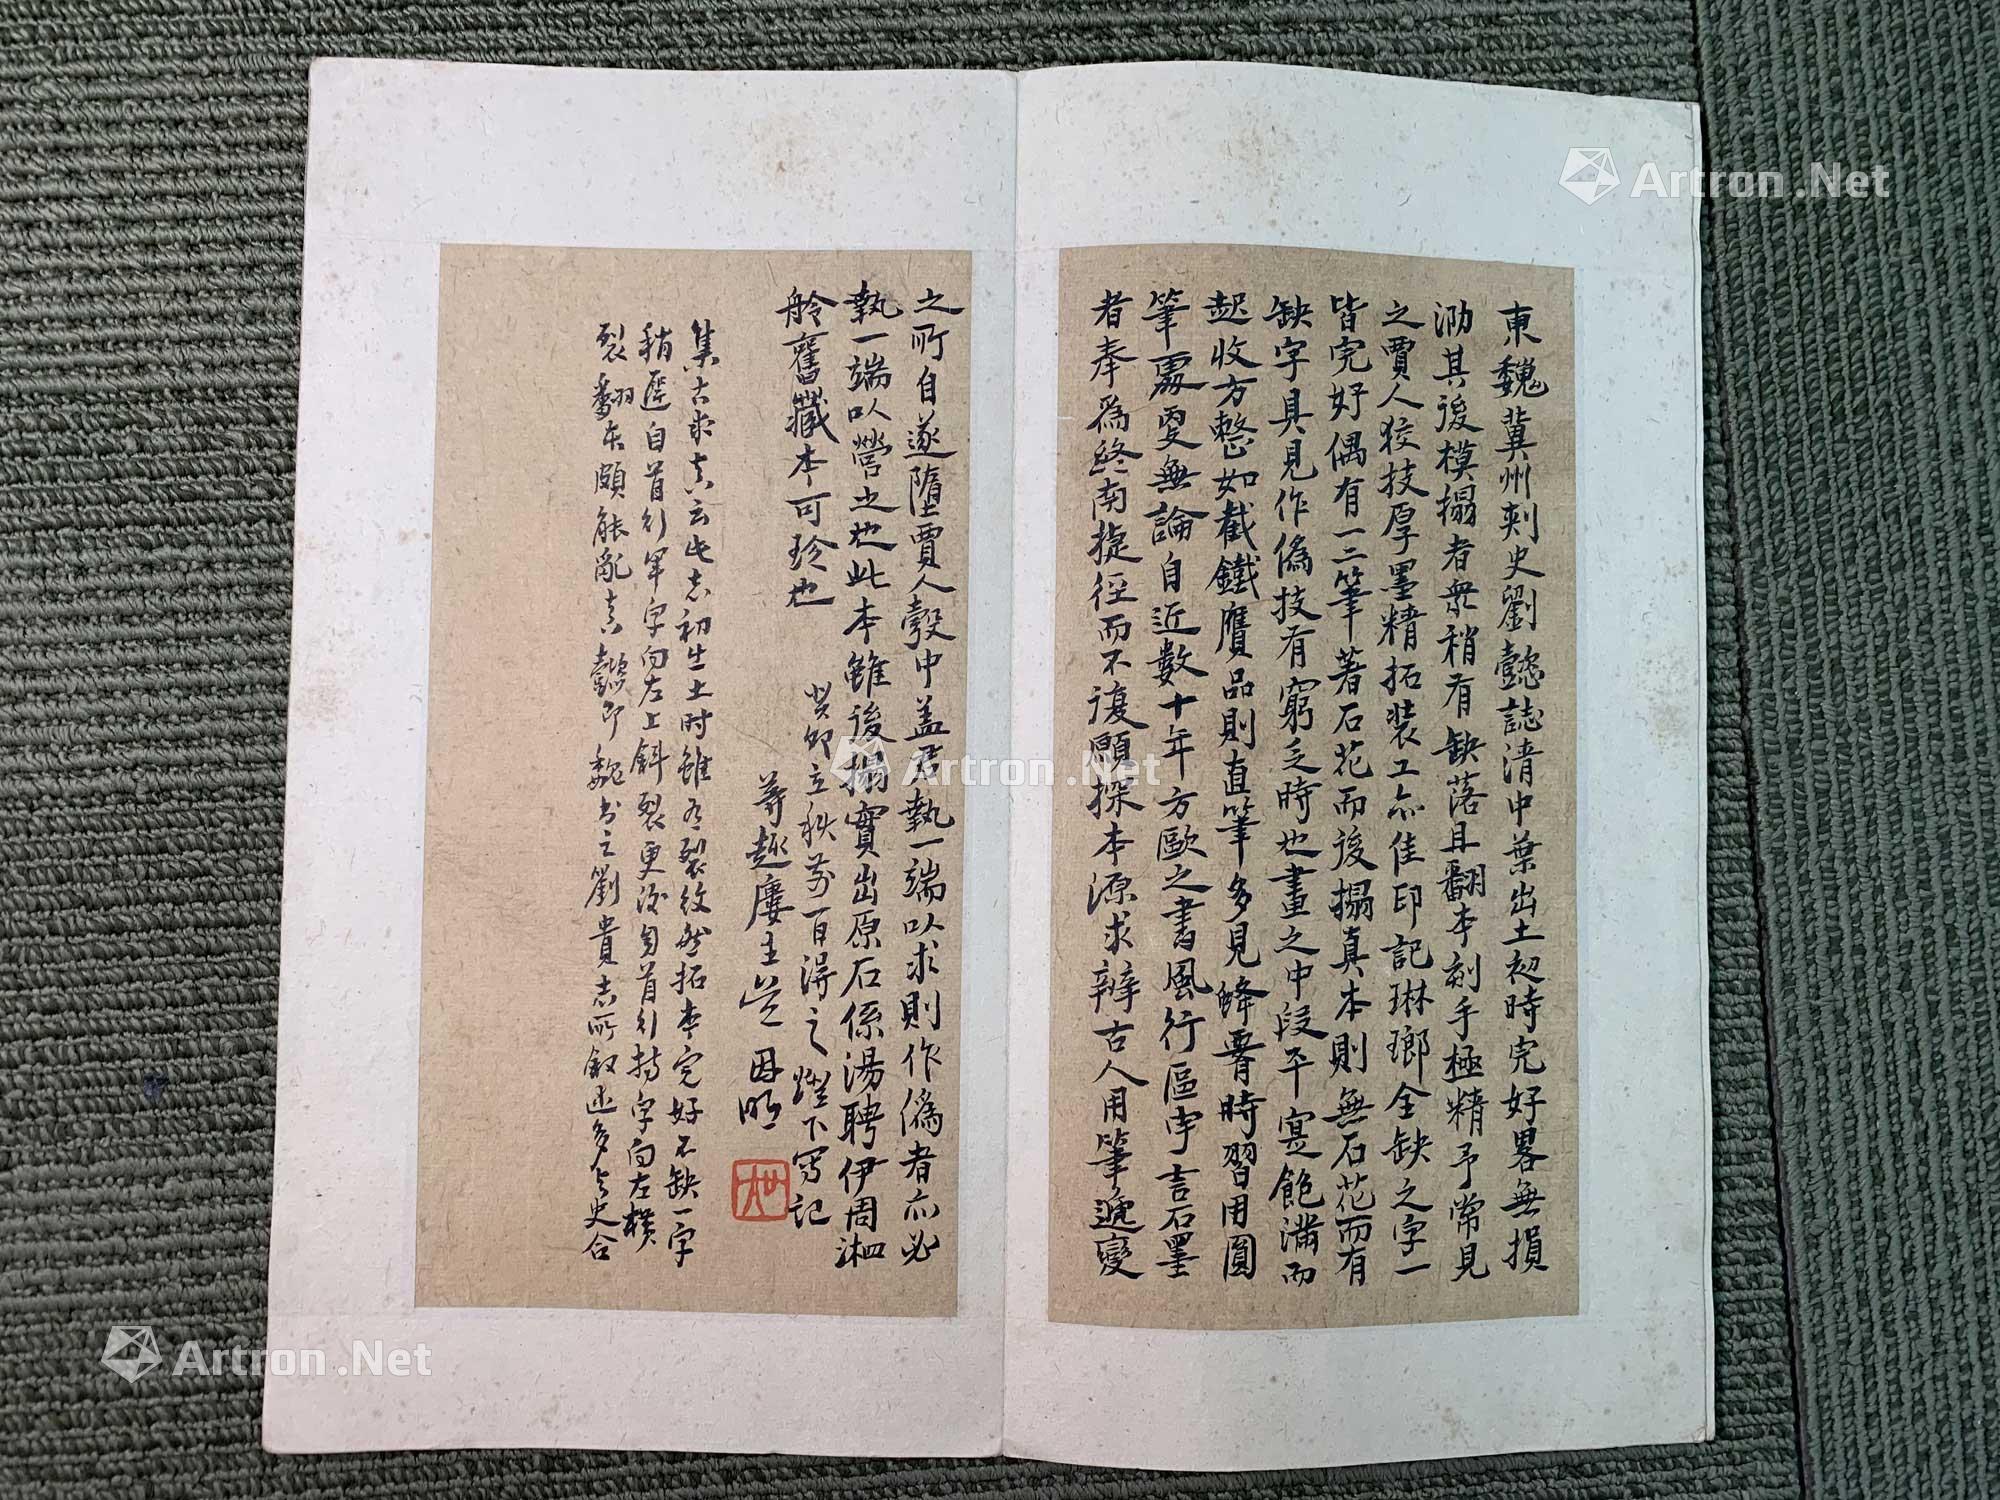 東魏冀州刺史劉懿誌清中葉出土初時完好畧無損
泐其後模搨者衆稍有缺落且翻本刻手極精予常見
之賈人狡技厚墨精拓裝工亦佳印記琳瑯全缺之字一
皆完好偶有一二筆著石花而後搨真本則無石花而有
缺字具見作偽技有窮乏時也畫之中段平寔飽滿而
起收方整如截鐵贗品則直筆多見蜂腰時習用圓
筆處更無論自近數十年方歐之書風行區宇言石墨
者奉為終南捷徑而不復顧探本源求辨古人用筆遞變
之所自遂墮賈人彀中蓋君執一端以求則作偽者亦必
執一端以營之也此本雖後搨實出原石係湯聘伊周湘
舲舊藏本可珍也
癸卯立秋前一日得之燈下寫記
蓴趣廔主
集古求真云此志初出土時雖有裂紋然拓本完好不缺一字
稍遲自首行軍字向左上斜裂更後自首行持字向左橫
裂翻本頗能亂真懿即魏書之劉貴志所叙述多與史合
Artron.Net
Artron.Net
Artron.Net